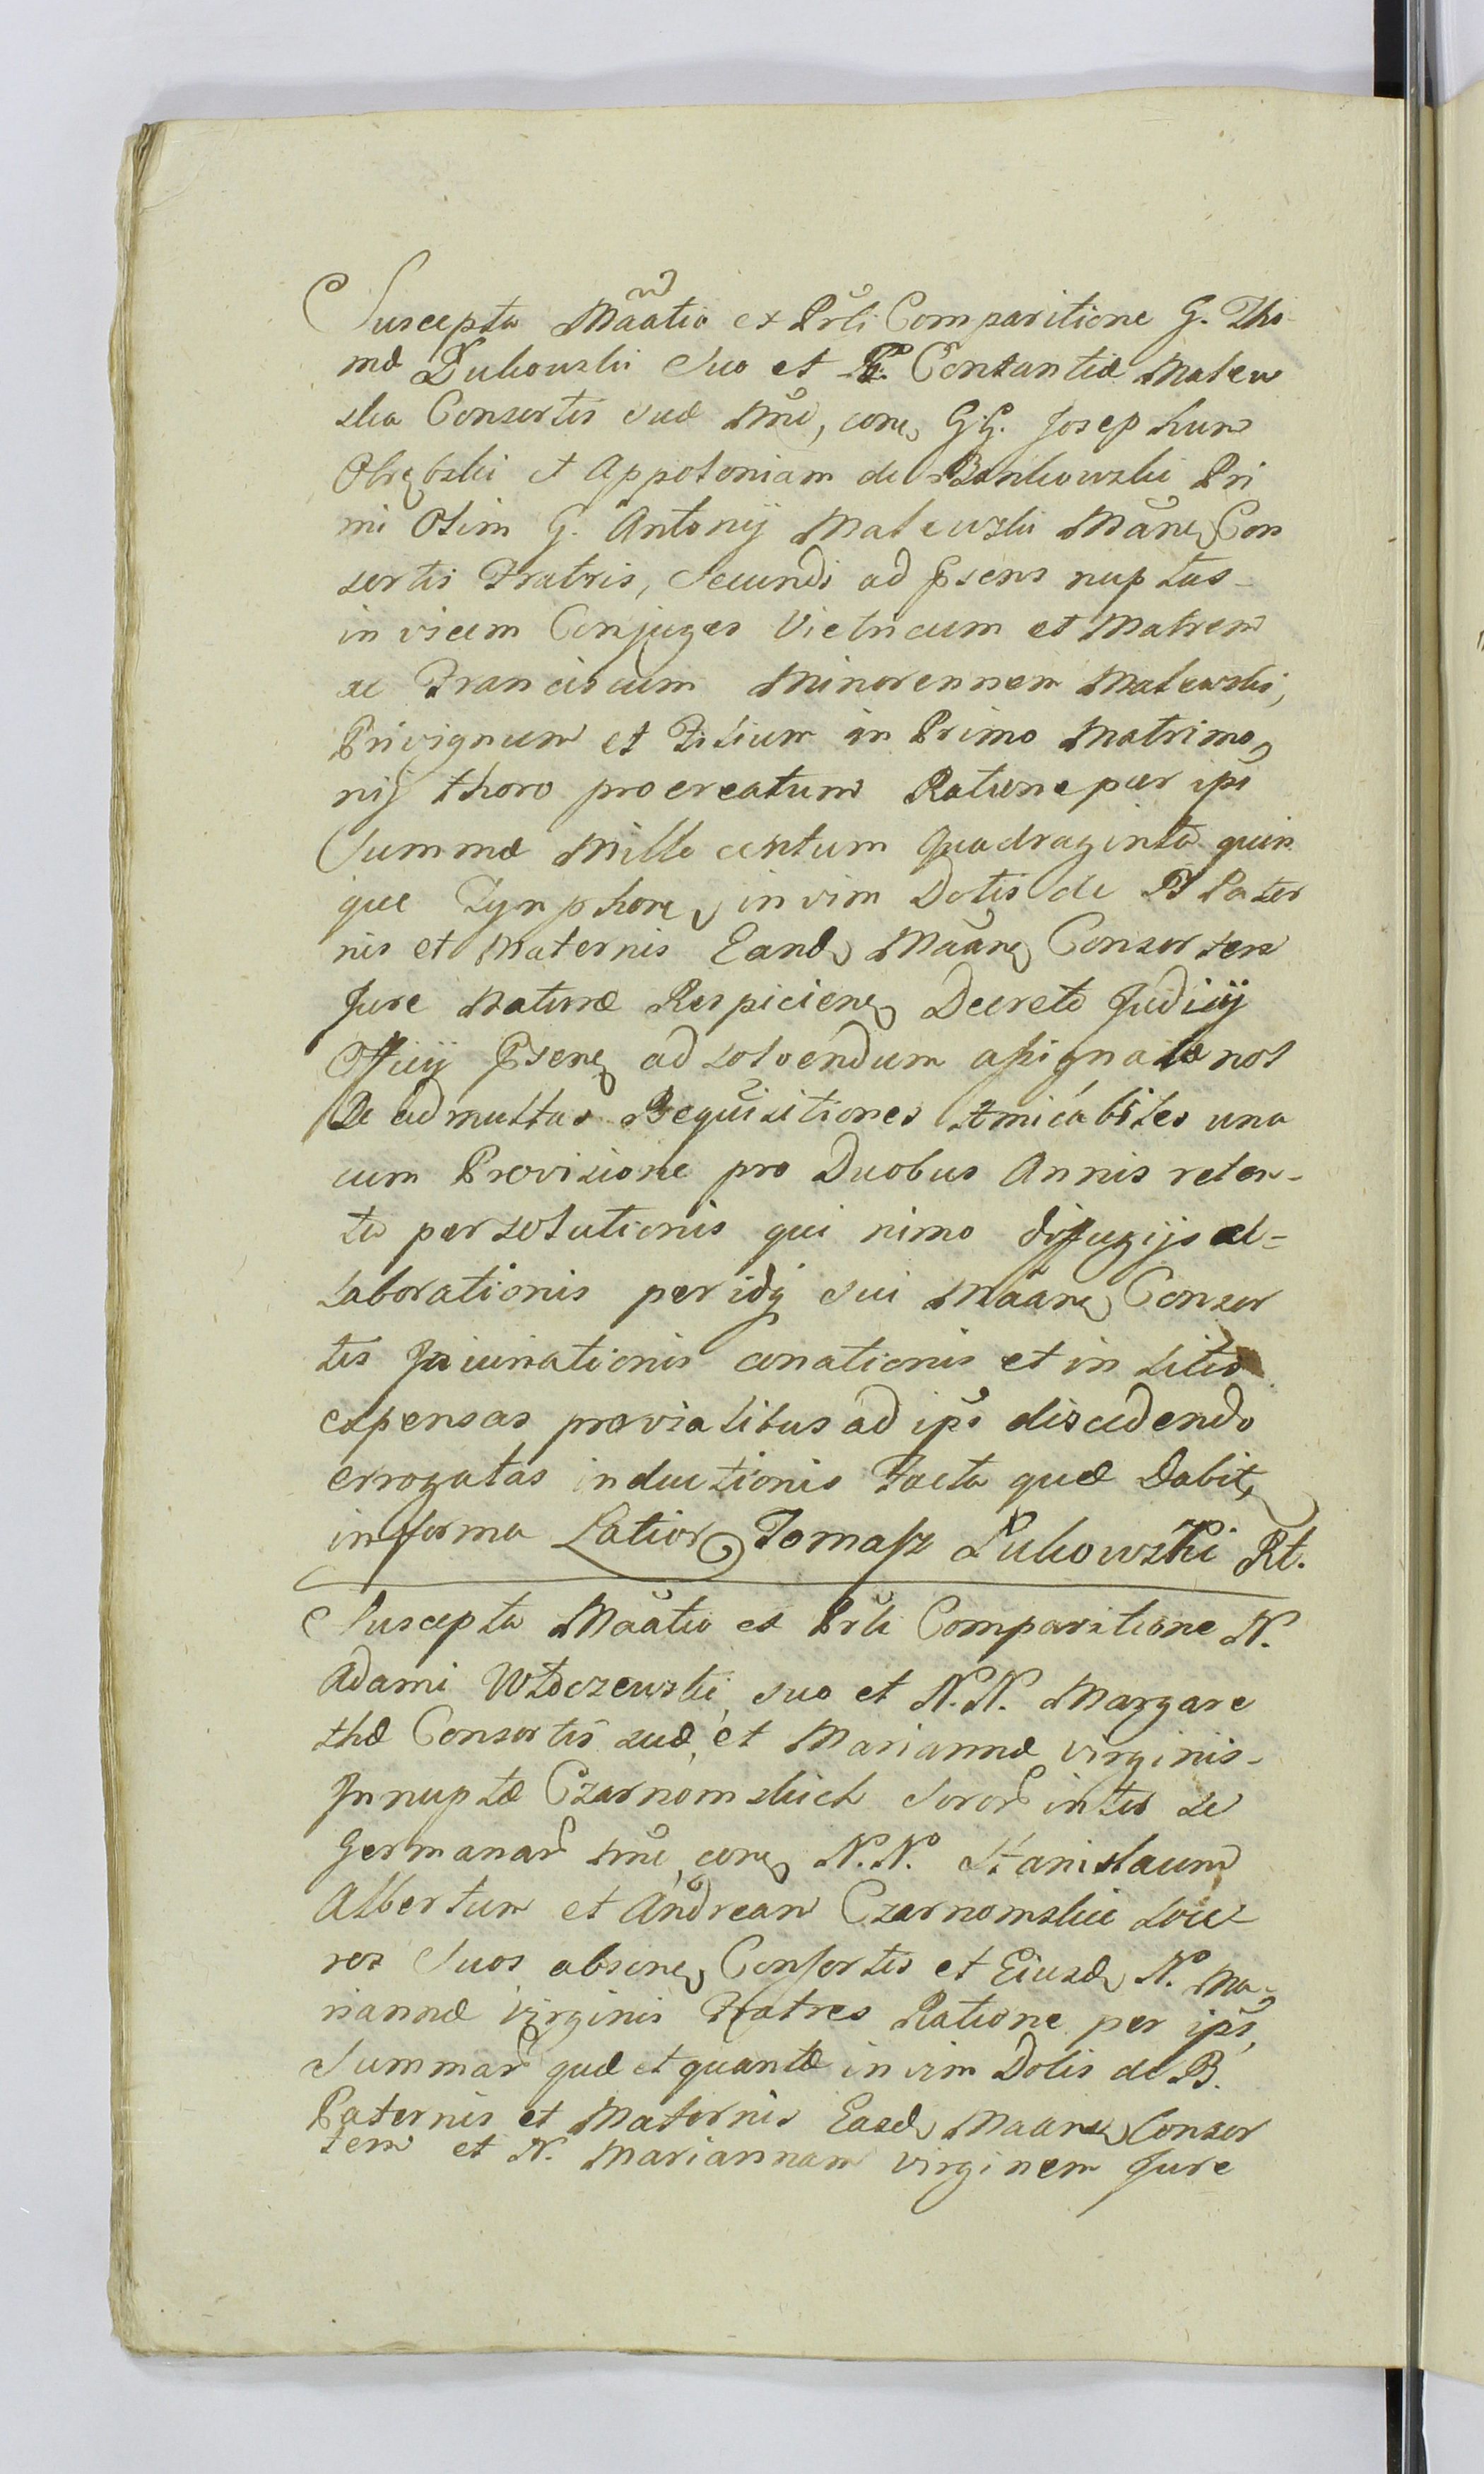 Suscepta Maãtio ex Prli Comparitione G. Tho-
mæ Lukowski Suo et G. Constantiæ Malew
ska Consortis suæ Nnie, cone GG. Josephum
Obrębski et Appoloniam de Bonkowskie Pri
mi Olim G. Antonij Malewski Mãane Con
sortis Fratris, Secundi ad Psens nuptas
in vicem Conjuges Vietricum et Matrem
ac Franciscum Minorennem Malewski,
Privignum et Filium in Primo Matrimo
nij thoro procreatum Ratione per ips
Summæ Mille centum Quadraginta quin
que Tymphone, in vim Dotis de B Pater
nis et Maternis Eand Mãane Consortem
Jure Naturæ Respiciene Decreto Judicij
Officij Psene ad solvendum assignatæ nol
De ad multas Requisitiones Amicabiles una
cum Provisione pro Duobus Annis reten-
ta persolutionis qui nimo diffugijs el-
laborationis per idq sui Mãane Consor
tis Jniurationis conationis et in litis
expensas provialitus ad ips discedendo
errogatas inductionis Facta quæ Dabit,
in forma Latior Tomasz Łukowski Rt.
Suscepta Maãtio ex Prli Comparitione N.
Adami Włoczewski, suo et N.N. Margare
thæ Consortis suæ, et Mariannæ virginis
Jnnuptæ Czarnomskich Soror inter se
Germanar Nnie, cone N.N. Stanislaum
Albertum et Andream Czarnomskie Soce
ros Suos absene, Consortis et Eiusd N. Ma-
riannæ virginis Fratres Ratione per ips
Summar quæ et quantæ in vim Dotis de B.
Paternis et Maternis Easd Maane Consor
tem et N. Mariannam virginem Jure